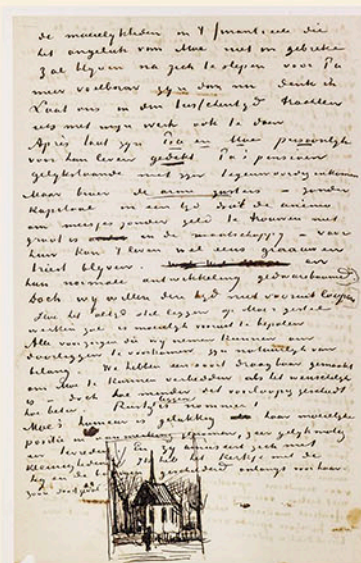 de moeielykheden in 't financieele die
het ongeluk van Moe niet in gebreke
zal blyven na zich te slepen voor Pa
meer voelbaar zyn dan nu denk ik
Laat ons in den tusschentyd trachten
iets met myn werk ook te doen
Après tout zyn Pa en Moe persoonlyk
voor hun leven gedekt Pa's pensioen
gelykstaande met zyn tegenwoordig inkomen
Maar broer de arme zusters – zonder
Kapitaal en in een tyd dat de animo
om meisjes zonder geld te trouwen niet
groot is in de maatschappy – voor
hun kan 't leven wel eens graauw en
triest blyven. en
hun normale ontwikkeling gedwarsboomd.
Doch wy willen den tyd niet vooruit loopen
Hoe het altyd stil liggen op Moe's gestel
werken zal is moeielyk vooruit te bepalen
Alle voorzorgen die wy nemen kunnen om
doorliggen te voorkomen zyn natuurlyk van
belang. We hebben een soort draagbaar gemaakt
om Moe te kunnen verbedden als het wenschelyk
is – doch hoe minder dat voorloopig geschiedt
hoe beter. Rustig liggen is nommer 1
Moe's humeur is gelukkig haar moeielyke
positie in aanmerking genomen, zeer gelykmatig
en tevreden En zy amuseert zich met
kleinigheden Ik heb het Kerkje met de
heg en de boomen geschilderd onlangs voor haar